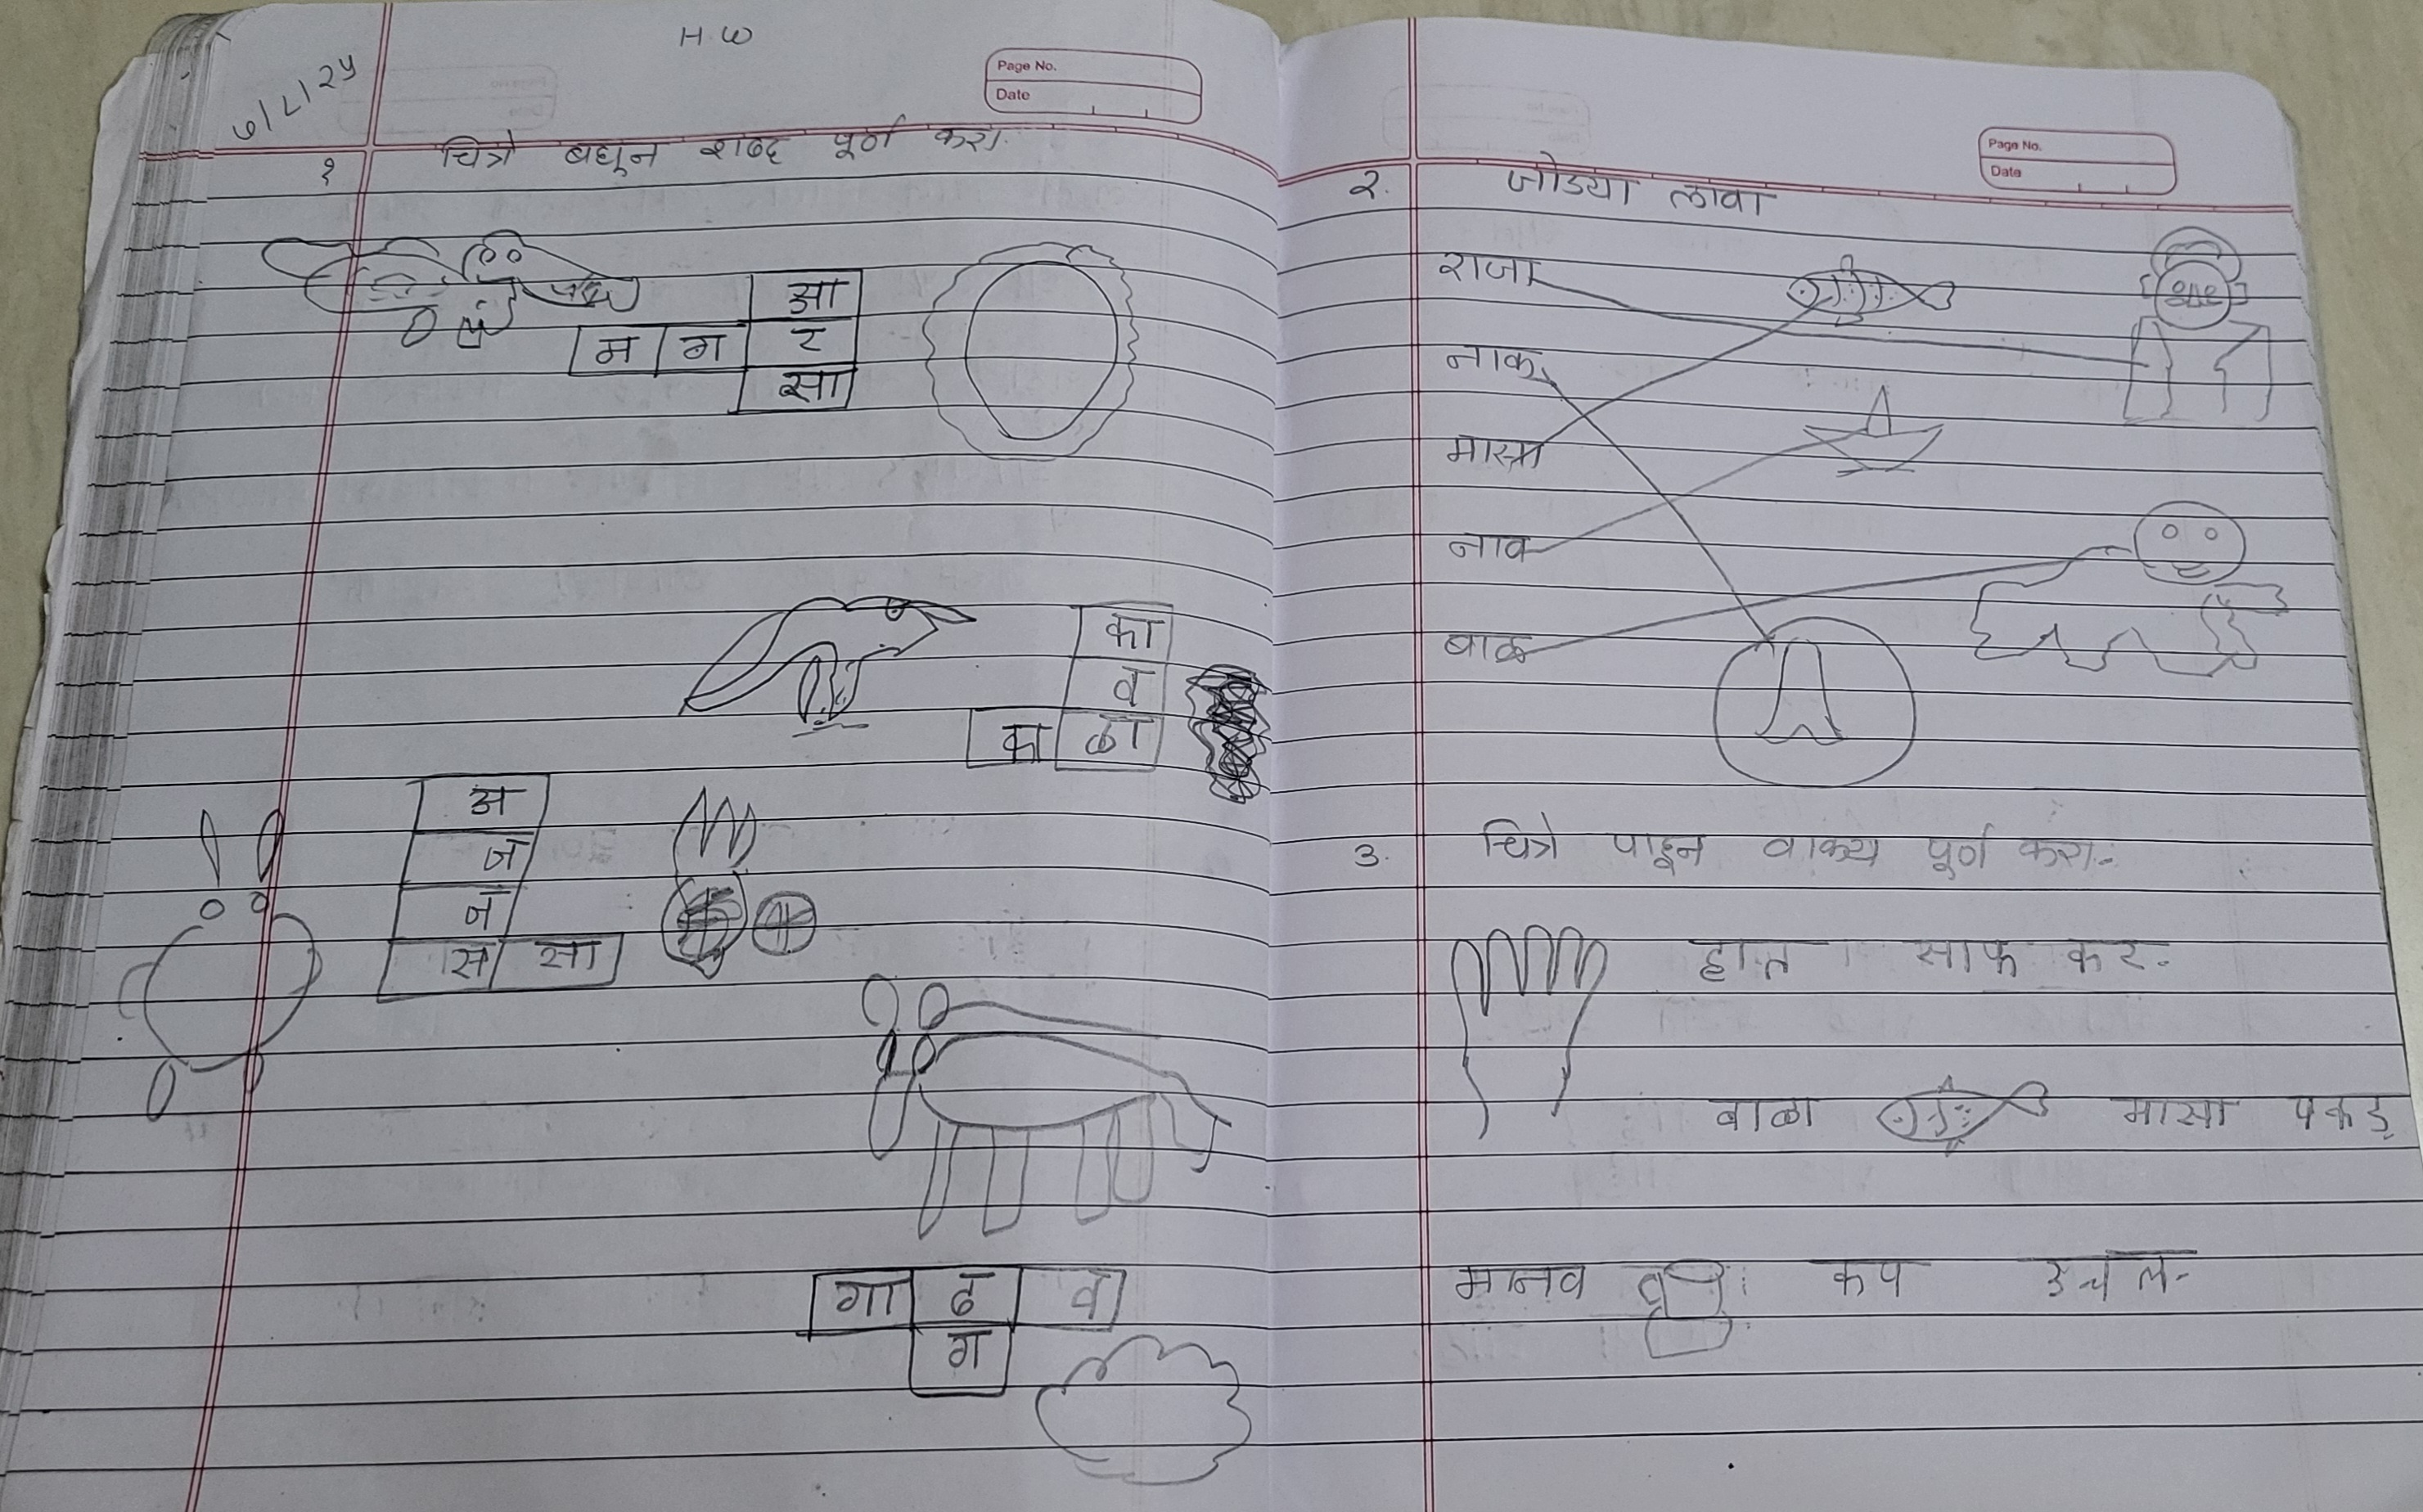 H.W
Page No.
Date
७/८/२५
१ चित्रे बघून शब्द पूर्ण करा.
आ
म ग र
सा
का
व
का ळा
अ
ज
ज
स सा
गा ढ व
ग
Page No.
Date
२. जोड्या लावा
राजा
नाक
मासा
नाव
बाळ
३. चित्रे पाहून वाक्य पूर्ण करा.
हात साफ कर.
बाळा मासा पकड
मानव कप उचल.